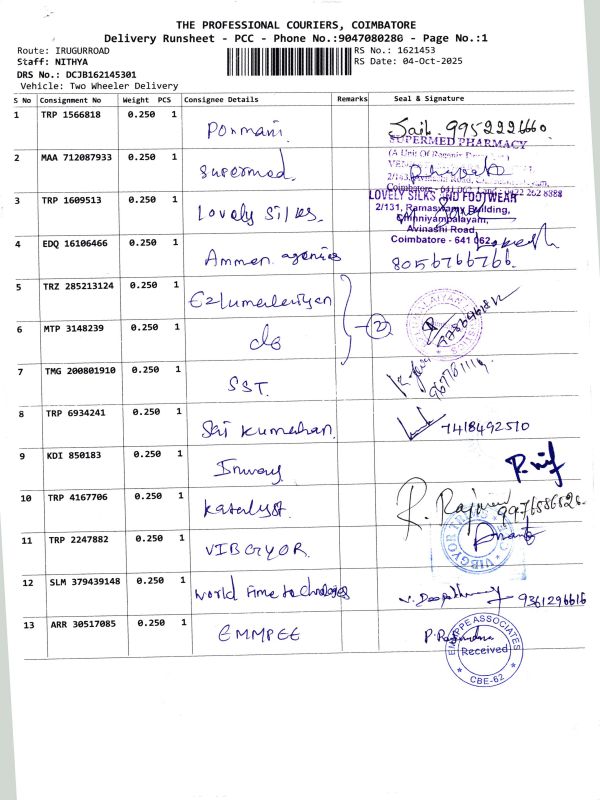 THE PROFESSIONAL COURIERS, COIMBATORE
Delivery Runsheet - PCC - Phone No.:9047080280 - Page No.:1
Route: IRUGURROAD
RS No.: 1621453
Staff: NITHYA
RS Date: 04-Oct-2025
DRS No.: DCJB162145301
Vehicle: Two Wheeler Delivery
S No Consignment No Weight PCS Consignee Details Remarks Seal & Signature
1 TRP 1566818 0.250 1 Ponmani 9952226660
SUPERMED PHARMACY
2 MAA 712087933 0.250 1 Supermed.
3 TRP 1609513 0.250 1 Lovely Silks
LOVELY SILKS AND FOOTWEAR
2/131, Ramaswamy Building,
Chinniyampalayam,
Avinashi Road,
Coimbatore - 641 062
4 EDQ 16106466 0.250 1 Ammen agencies 8056766766
5 TRZ 285213124 0.250 1
6 MTP 3148239 0.250 1 do 2
7 TMG 200801910 0.250 1 SST.
8 TRP 6934241 0.250 1 Sri Kumaran 7418492510
9 KDI 850183 0.250 1
10 TRP 4167706 0.250 1 Katalyst R. Rajavel
11 TRP 2247882 0.250 1 VIBGYOR
VIBGYOR
12 SLM 379439148 0.250 1 World Time technologies 9361296616
13 ARR 30517085 0.250 1 EMMPEE
EMMPPE ASSOCIATES
Received
CBE-62